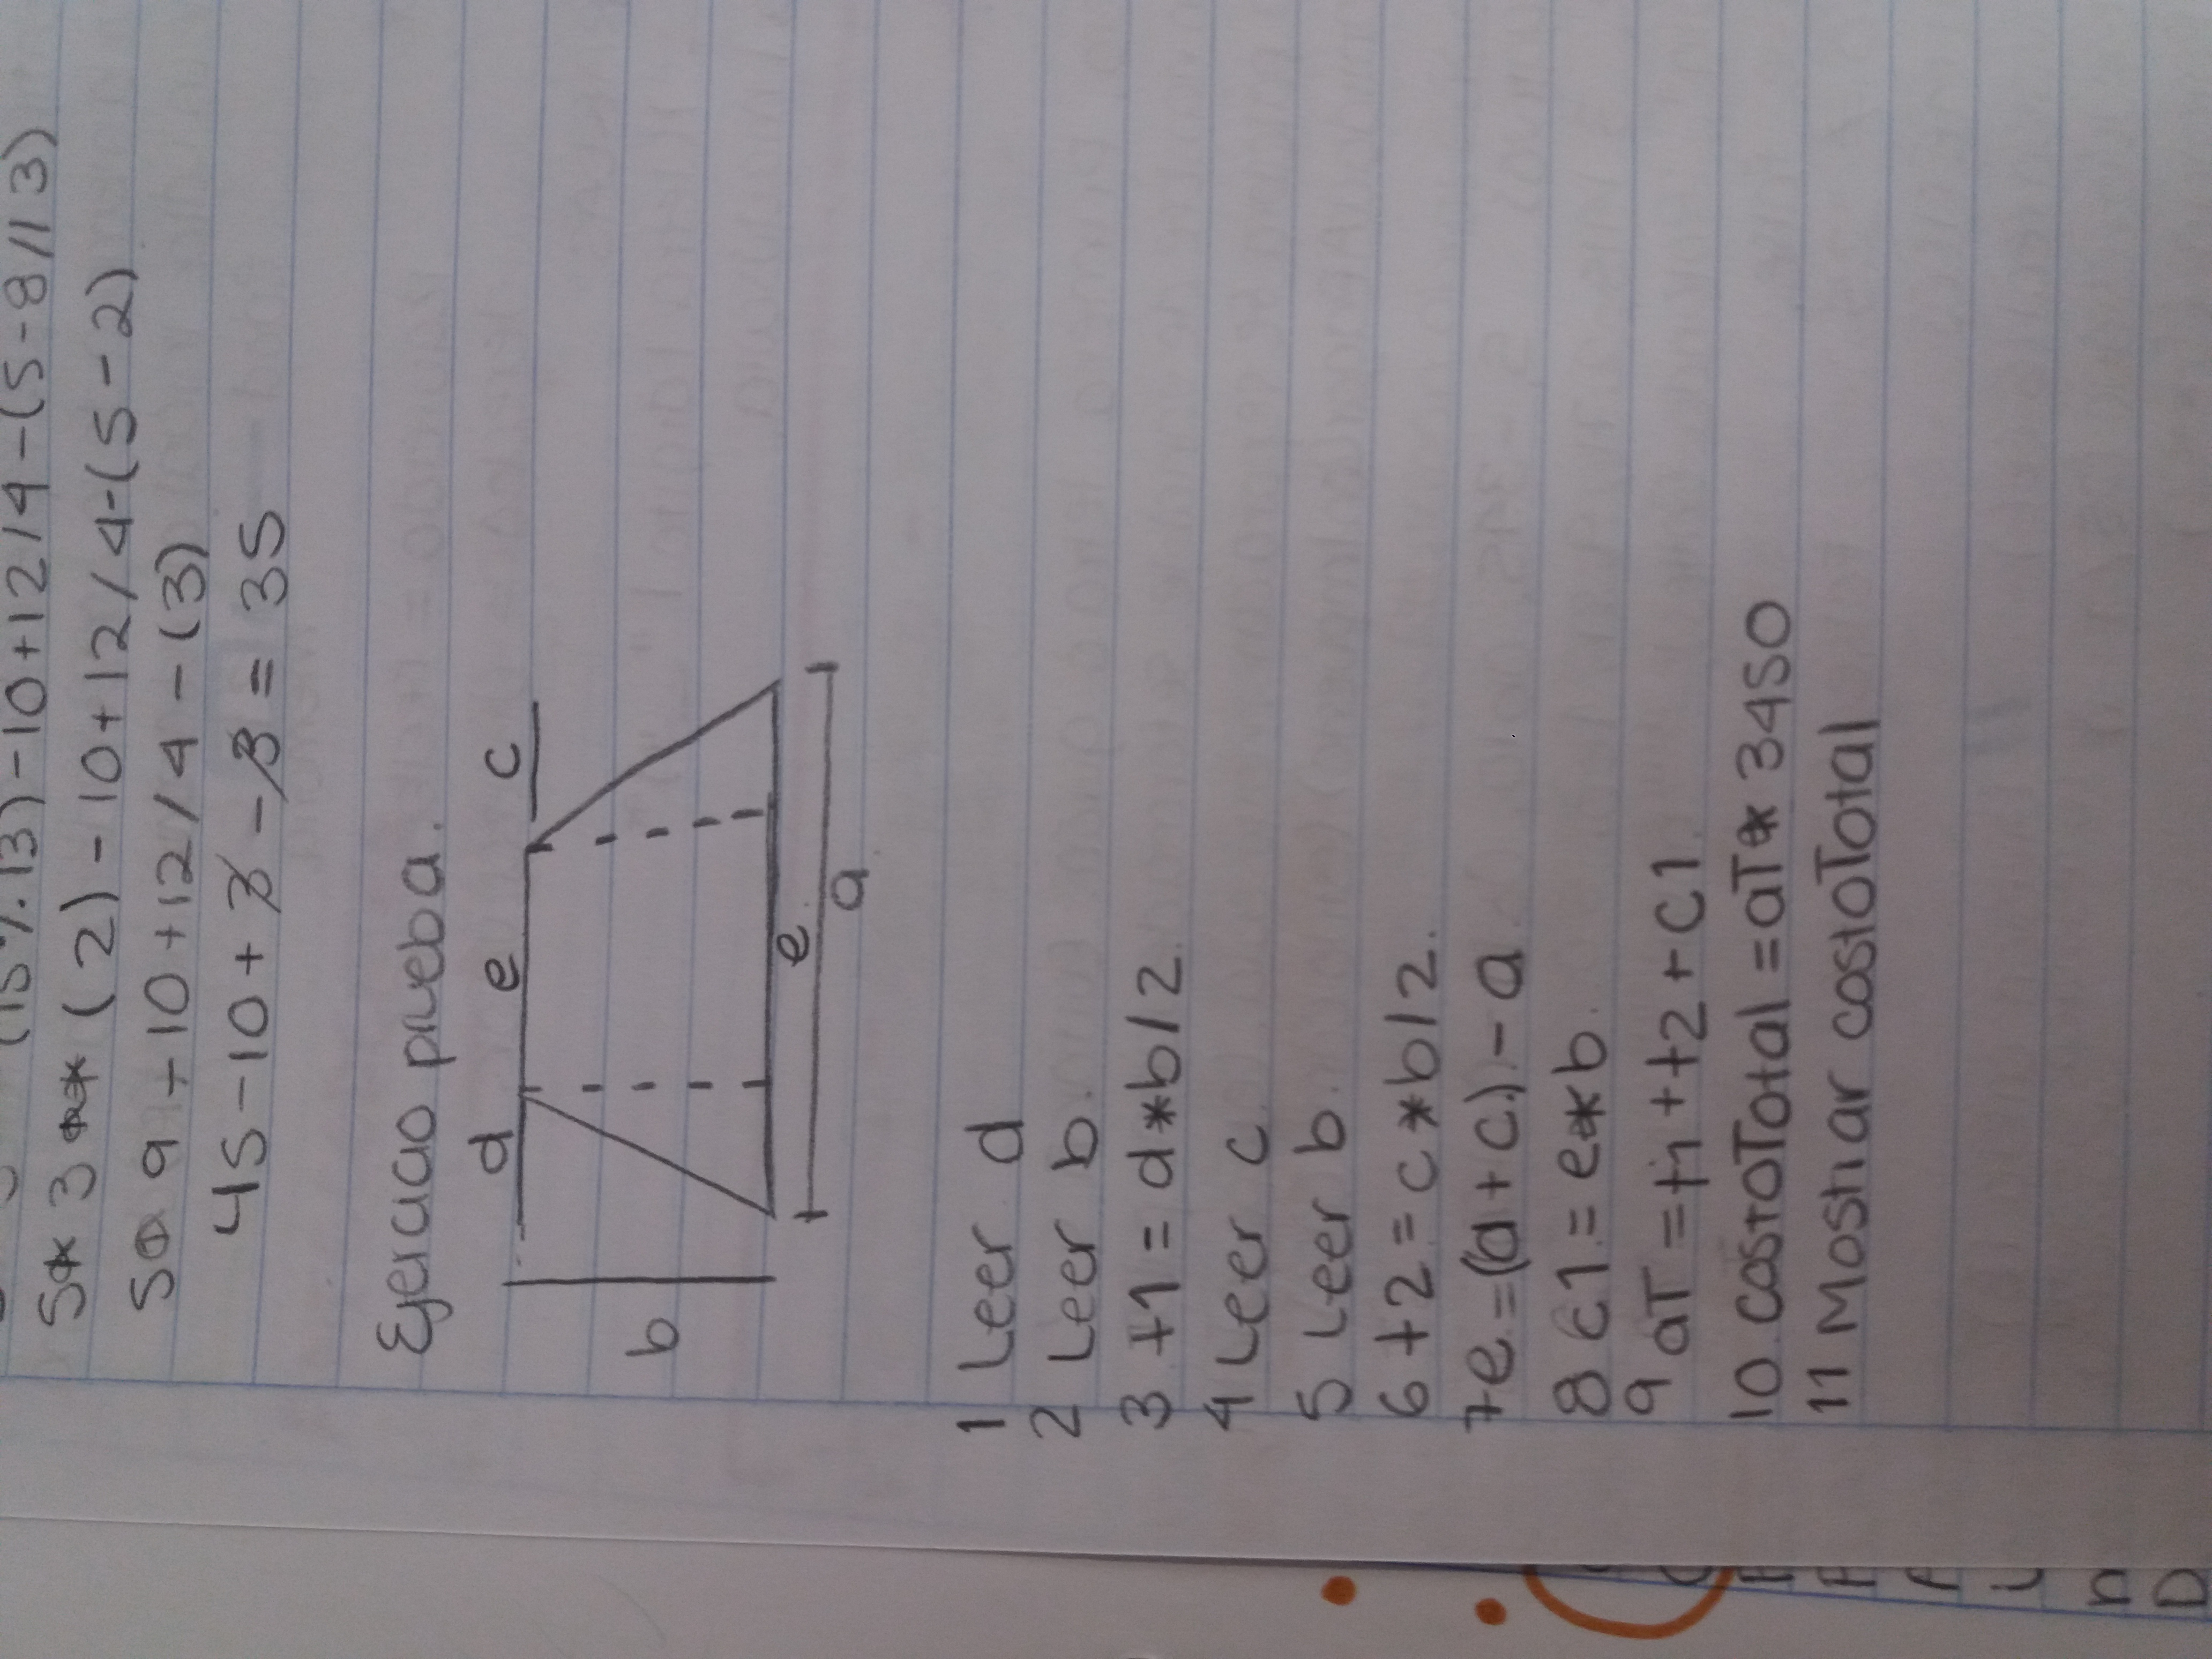 (15%13)-10+12/4-(5-8//3)
5* 3 ** (2)-10+12/4-(5-2)
5* 9 -10+12/4-(3)
45-10+3-3=35
Ejercicio prueba.
d e c
b
e
a
1 Leer d
2 Leer b.
3 t1=d*b/2
4 Leer c
5 Leer b.
6 t2=c*b/2.
7 e=(d+c)-a
8 C1=e*b.
9 aT=t1+t2+C1
10 costoTotal=aT* 3450
11 Mostrar costoTotal
A
i
n
D